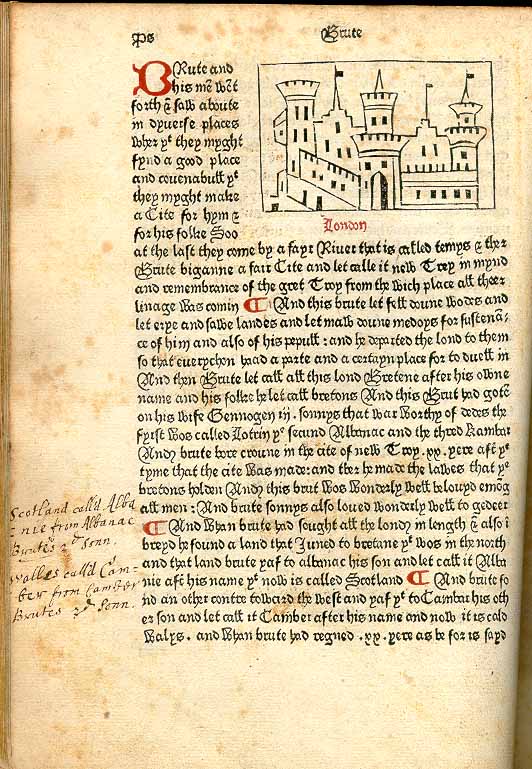 Brute
BRute and
his mē wēt
forth & saw aboute
in dyuerse places
wher yͤ they myght
fynd a good place
and couenabull yͭ
they myght make
a Cite for hym &
for his folke Soo
London
at the last they come by a fayr Riuer that is called temys & ther
Brute biganne a fair Cite and let calle it new Troy in mynd
and remembrance of the gret Troy from the wich place all theer
linage was comin ¶ And this brute let fell doune wodes and
let erye and sawe landes and let maw doune medoys for sustenā-
ce of him and also of his pepull : and he departed the lond to them
so that euerychon haad a parte and a certayn place for to duell in
And then Brute let call all this lond Bretene after his owne
name and his folke he let call bretons And this Brut had gotē
on his wife Gennogen iij. sonnys that war worthy of dedes the
fyrst wos called Lotrin yͤ secund Albanac and the thred Kambar
Andy brute bore croune in the cite of new Troy .xx. yere aft̄ yͤ
tyme that the cite was made: and ther he made the lawes that yͤ
bretons holden Andy this brut was wonderly well belouyd emōg
all men : And brute sonnys also loued wonderly well to gedeer
¶ And whan brute had sought all the londy in length & also ī
breyd he found a land that Juned to bretane yͭ wos in the north
and that land brute yaf to albanac his son and let call it Alba
nie aft̄ his name yͭ now is called Scotland ¶ And brute fo
nd an other contre toward the west and yaf yͭ to Cambar his oth
er son and let call it Camber after his name and now it is cald
walys. and whan brute had regned .xx. yere as be for is sayd
Scotland call'd Alba
nie from Albanac
Brutes 2ᵈ Sonn.
Walles call'd Cam-
ber from Camber
Brutes 3ᵈ Sonn.